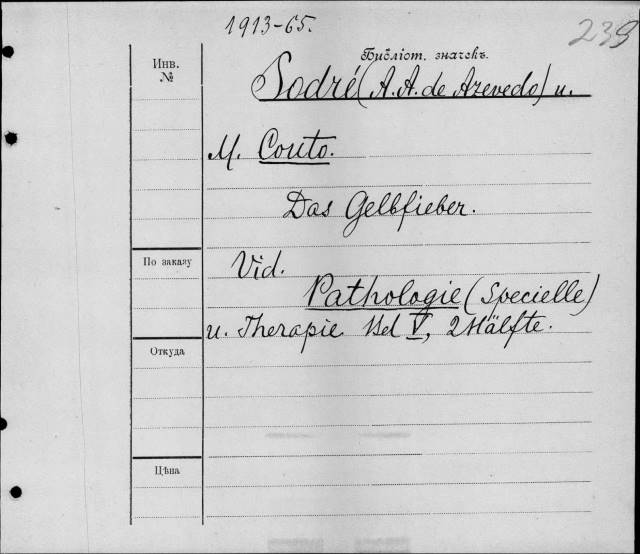 1913-65.
239
Инв.
№
Библіот. значекъ.
Sodré (A. A. de Azevedo) u.
M. Couto.
Das Gelbfieber.
По заказу
Vid.
Pathologie (Specielle)
u. Therapie Bd V, 2 Hälfte.
Откуда
Цѣна